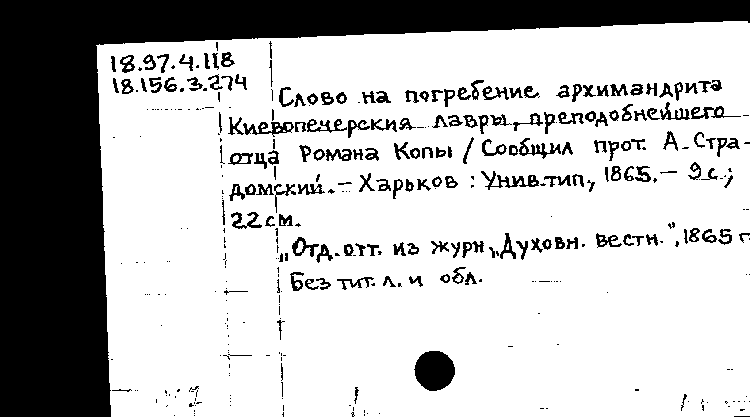 18.97.4.118
18.156.3.274
Слово на погребение архимандрита
Киевопечерския лавры, преподобнейшего
отца Романа Копы / Сообщил прот. А. Стра-
домский. — Харьков : Унив. тип., 1865. — 9 с.;
22 см.
„Отд. отт. из журн. „Духовн. вестн.", 1865 г.
Без тит. л. и обл.